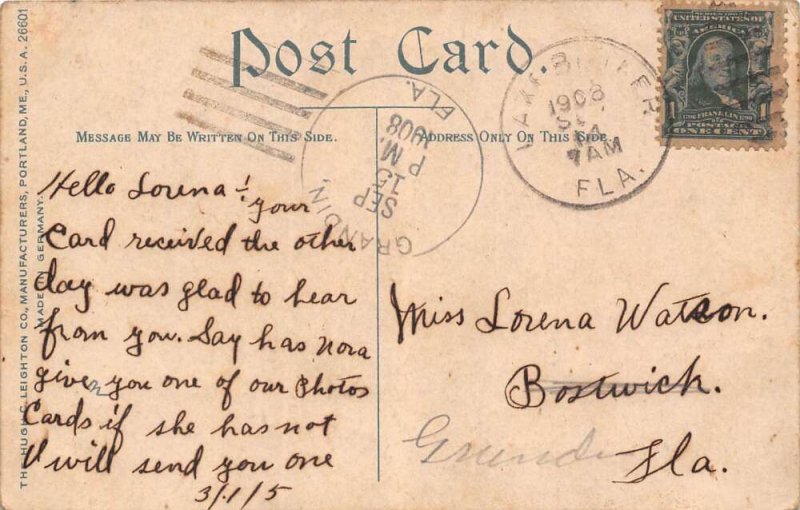 Post Card.
MESSAGE MAY BE WRITTEN ON THIS SIDE.
ADDRESS ONLY ON THIS SIDE
THE HUGH C. LEIGHTON CO., MANUFACTURERS, PORTLAND, ME., U.S.A. 26601
MADE IN GERMANY.
GRANDIN, FLA.
SEP
15
P M
1908
LAKE BUTLER
1908
14
7AM
FLA.
UNITED STATES OF
AMERICA
FRANKLIN
1
POSTAGE
ONE CENT
Hello Lorena! your
Card received the other
day was glad to hear
from you. Say has Nora
given you one of our Photos
Cards if she has not
I will send you one
3/1/5
Miss Lorena Watson.
Bostwick.
Fla.